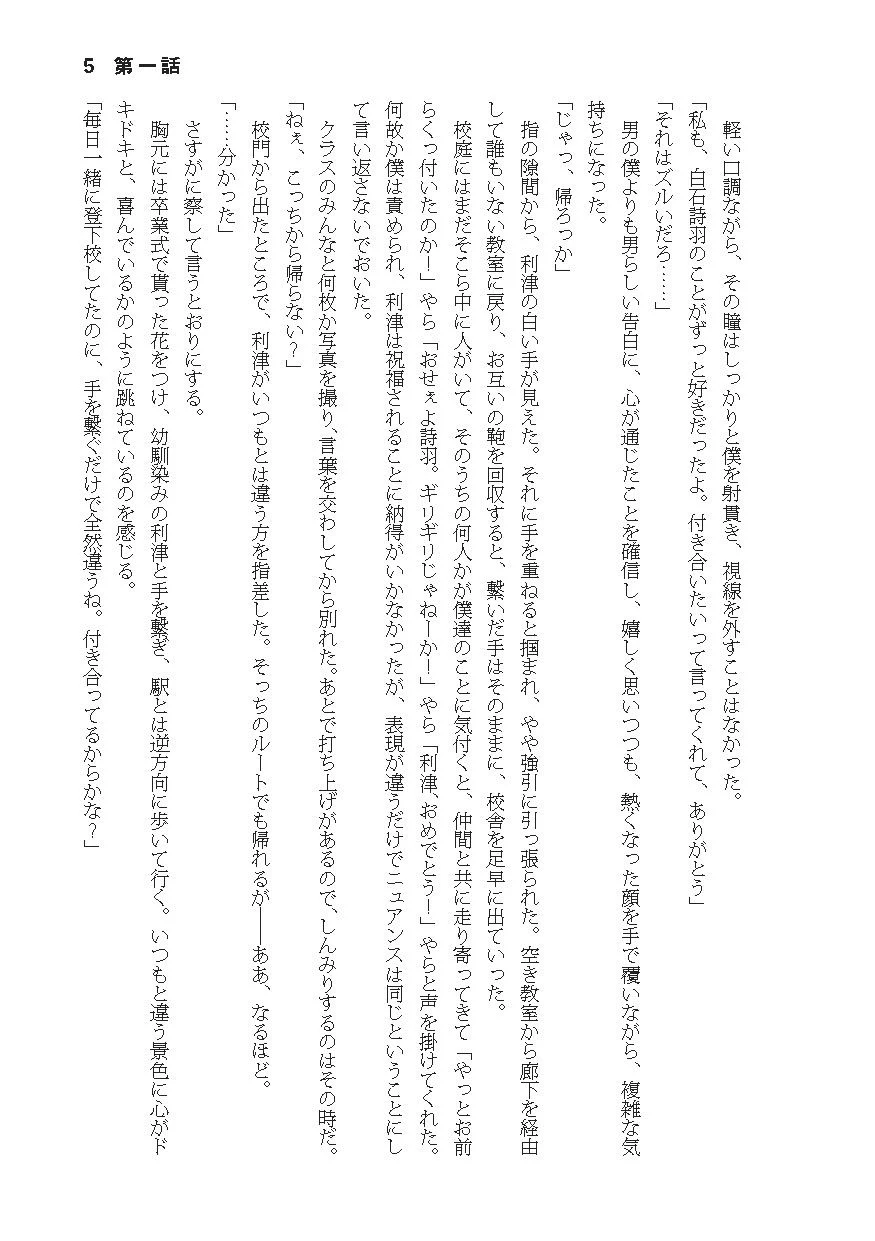 5　第一話
　軽い口調ながら、その瞳はしっかりと僕を射貫き、視線を外すことはなかった。
「私も、白石詩羽のことがずっと好きだったよ。付き合いたいって言ってくれて、ありがとう」
「それはズルいだろ……」
　男の僕よりも男らしい告白に、心が通じたことを確信し、嬉しく思いつつも、熱くなった顔を手で覆いながら、複雑な気
持ちになった。
「じゃっ、帰ろっか」
　指の隙間から、利津の白い手が見えた。それに手を重ねると掴まれ、やや強引に引っ張られた。空き教室から廊下を経由
して誰もいない教室に戻り、お互いの鞄を回収すると、繋いだ手はそのままに、校舎を足早に出ていった。
　校庭にはまだそこら中に人がいて、そのうちの何人かが僕達のことに気付くと、仲間と共に走り寄ってきて「やっとお前
らくっ付いたのか！」やら「おせぇよ詩羽。ギリギリじゃねーか！」やら「利津、おめでとう！」やらと声を掛けてくれた。
何故か僕は責められ、利津は祝福されることに納得がいかなかったが、表現が違うだけでニュアンスは同じということにし
て言い返さないでおいた。
　クラスのみんなと何枚か写真を撮り、言葉を交わしてから別れた。あとで打ち上げがあるので、しんみりするのはその時だ。
「ねぇ、こっちから帰らない？」
　校門から出たところで、利津がいつもとは違う方を指差した。そっちのルートでも帰れるが――ああ、なるほど。
「……分かった」
　さすがに察して言うとおりにする。
　胸元には卒業式で貰った花をつけ、幼馴染みの利津と手を繋ぎ、駅とは逆方向に歩いて行く。いつもと違う景色に心がド
キドキと、喜んでいるかのように跳ねているのを感じる。
「毎日一緒に登下校してたのに、手を繋ぐだけで全然違うね。付き合ってるからかな？」